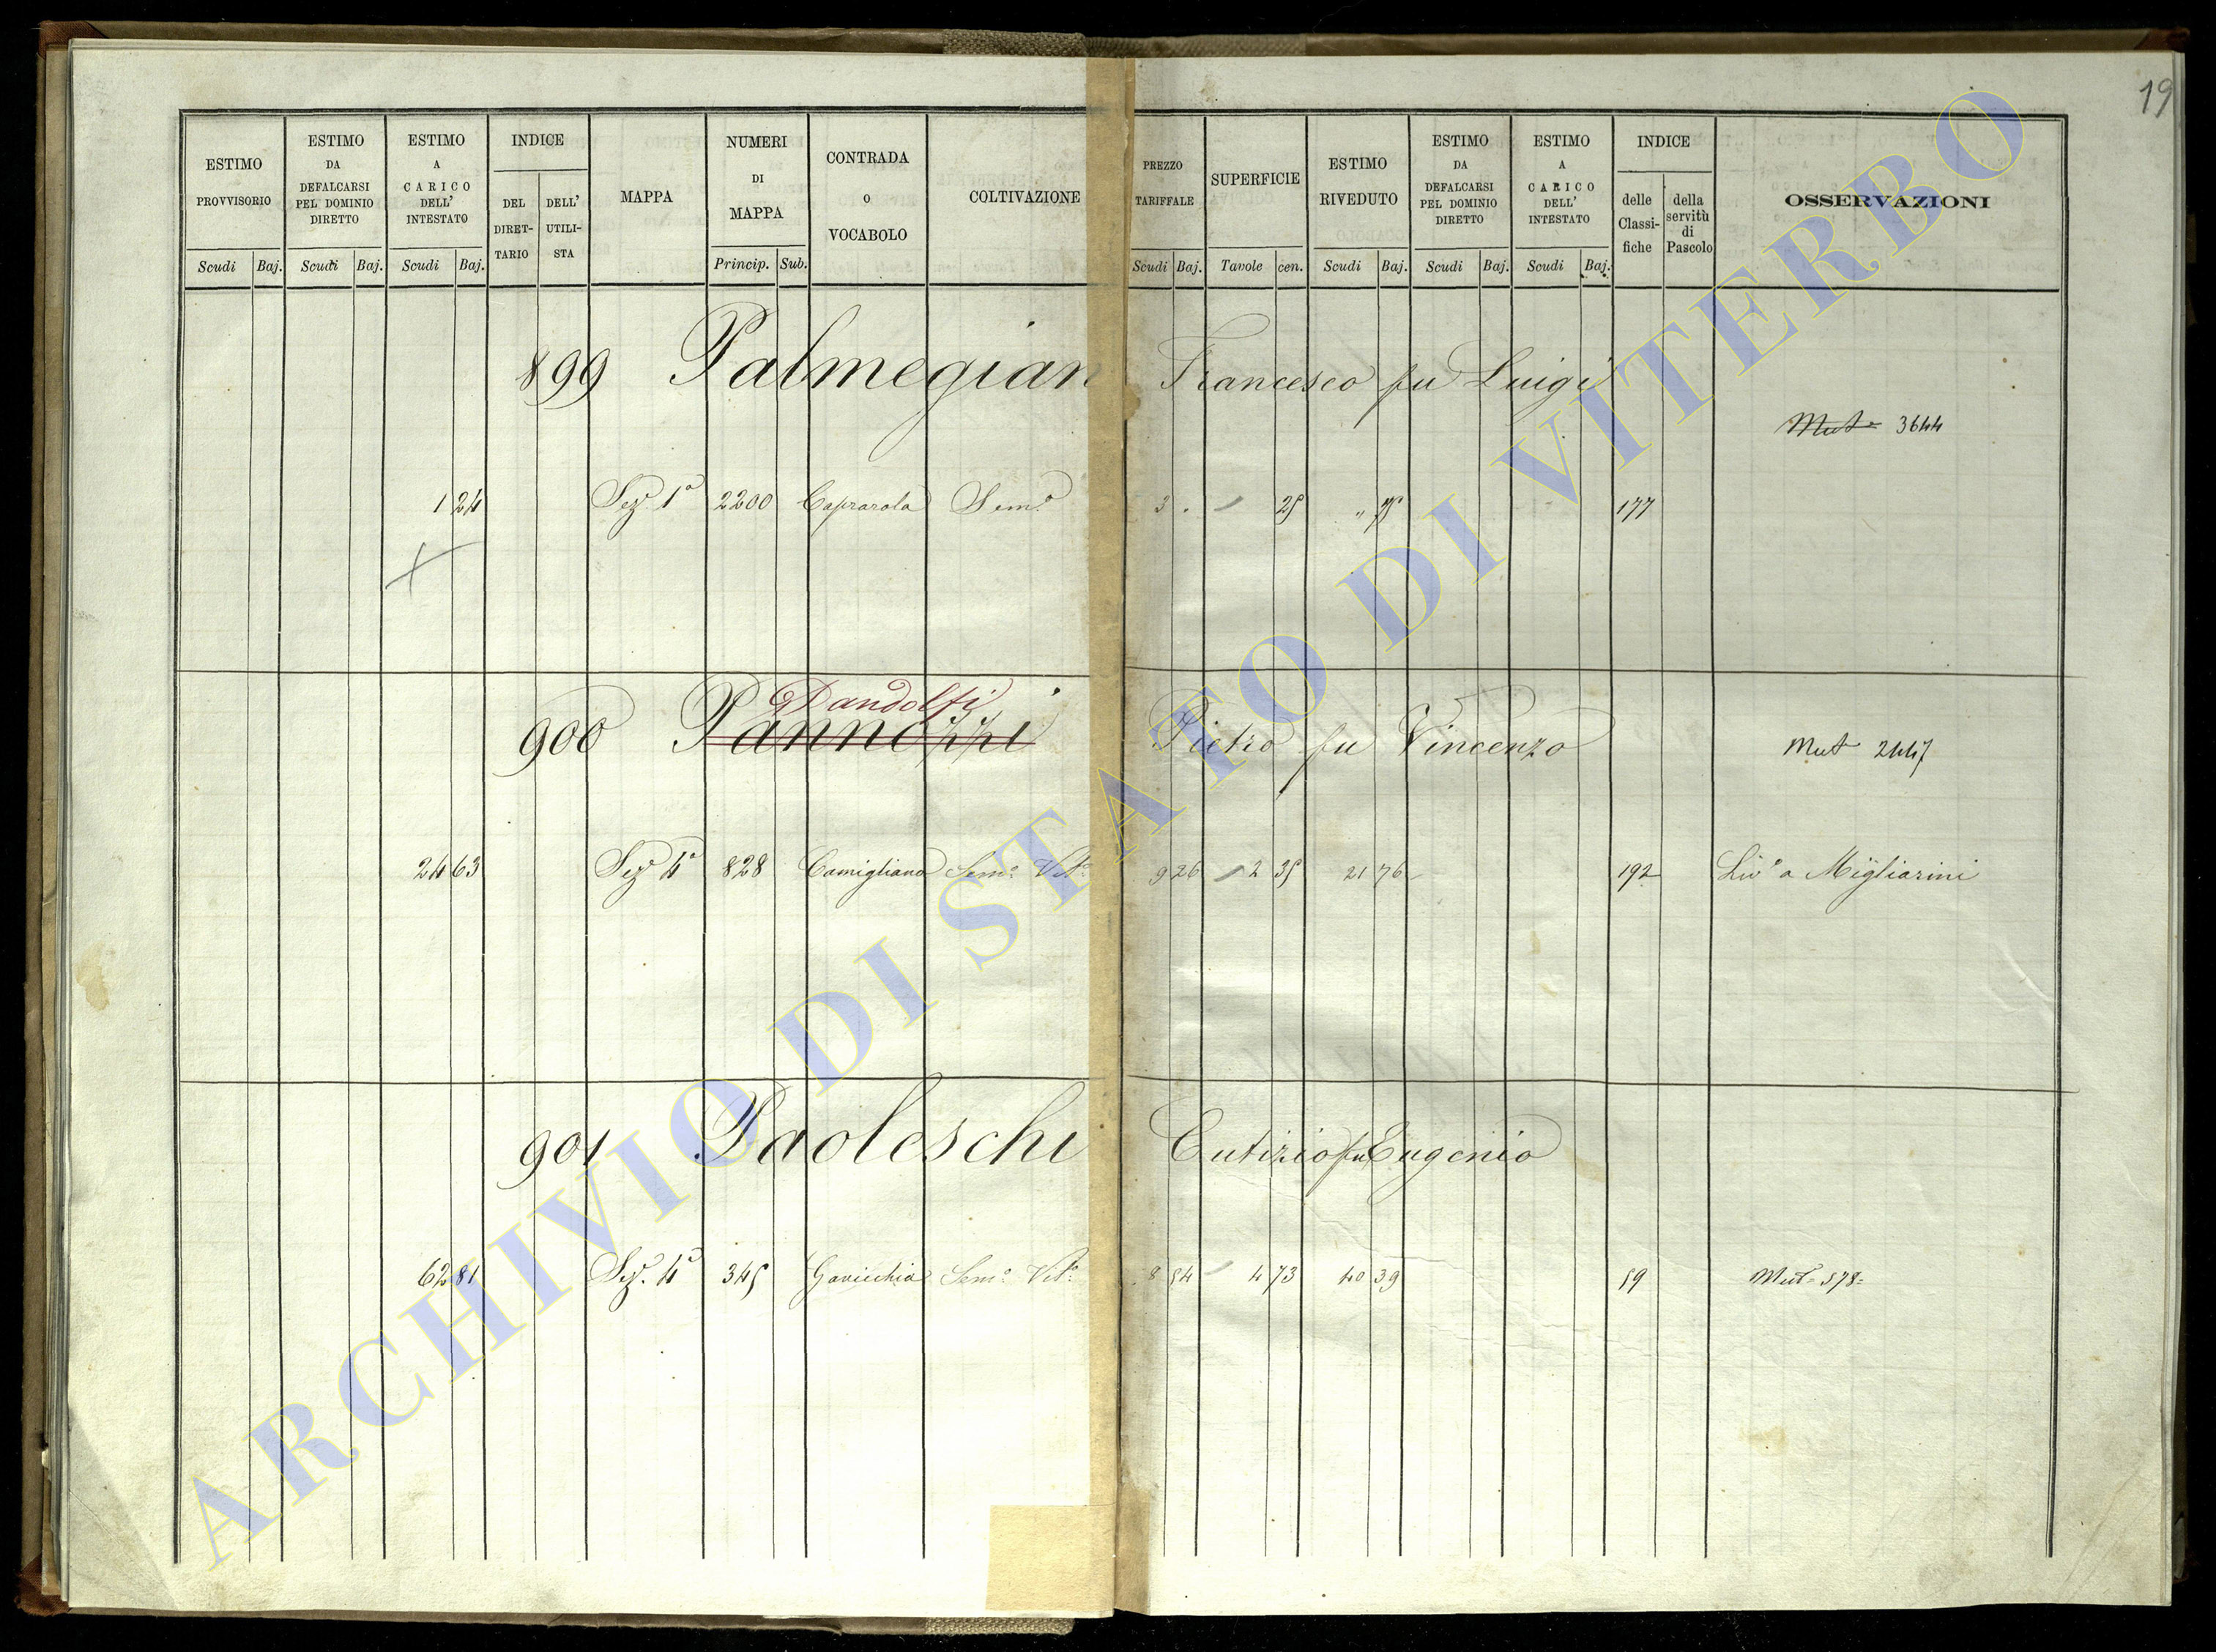 19
ESTIMO PROVVISORIO
Scudi Baj.
ESTIMO DA DEFALCARSI PEL DOMINIO DIRETTO
Scudi Baj.
ESTIMO A CARICO DELL' INTESTATO
Scudi Baj.
INDICE
DEL DIRET- TARIO
DELL' UTILI- STA
MAPPA
NUMERI DI MAPPA
Princip. Sub.
CONTRADA O VOCABOLO
COLTIVAZIONE
PREZZO TARIFFALE
Scudi Baj.
SUPERFICIE
Tavole cen.
ESTIMO RIVEDUTO
Scudi Baj.
ESTIMO DA DEFALCARSI PEL DOMINIO DIRETTO
Scudi Baj.
ESTIMO A CARICO DELL' INTESTATO
Scudi Baj.
INDICE
delle Classi- fiche
della servitù di Pascolo
OSSERVAZIONI
899 Palmegian Francesco fu Luigi
Mut= 3644
1 24 Sez. 1a 2200 Caprarola Semo 3 . 25 " 75 177
Dandolfi
900 Pannozzi Pietro fu Vincenzo
Mut 2447
24 63 Sez. 4a 828 Camigliano Semo Vito 9 26 2 35 21 76 192 Livo a Migliarini
901 Paoleschi Eutizio fu Eugenio
62 81 Sez. 4a 345 Gavicchia Semo Vito 8 54 4 73 40 39 59 Mut= 578=
ARCHIVIO DI STATO DI VITERBO